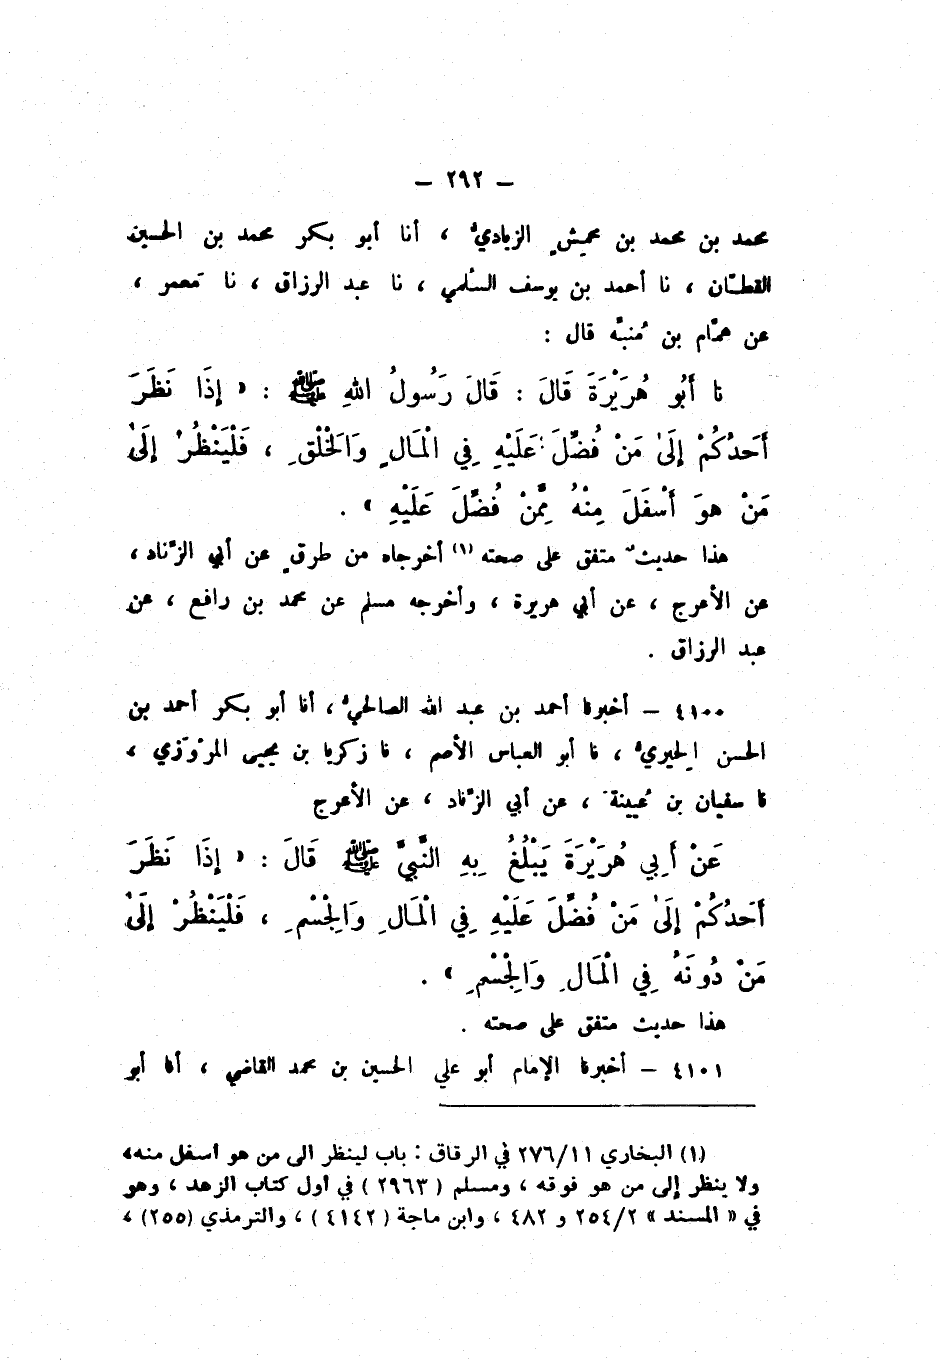 – ٢٩٢ –
محمد بن محمد بن محمِش الزيادي ، أنا أبو بكر محمد بن الحسين
القطّان ، نا أحمد بن يوسف السُّلمي ، نا عبد الرزاق ، نا مَعمر ،
عن همّام بن مُنبّه قال :
نا أَبُو هُرَيْرَةَ قَالَ : قَالَ رَسُولُ اللهِ ﷺ : « إِذَا نَظَرَ
أَحَدُكُمْ إِلَىٰ مَنْ فُضِّلَ عَلَيْهِ فِي الْمَالِ وَالْخَلْقِ ، فَلْيَنْظُرْ إِلَىٰ
مَنْ هوَ أَسْفَلَ مِنْهُ مِمَّنْ فُضِّلَ عَلَيْهِ » .
هذا حديثٌ متفق على صحته (١) أخرجاه من طرقٍ عن أبي الزّناد ،
عن الأعرج ، عن أبي هريرة ، وأخرجه مسلم عن محمد بن رافع ، عن
عبد الرزاق .
٤١٠٠ – أخبرنا أحمد بن عبد الله الصالحيُّ ، أنا أبو بكر أحمد بن
الحسن الحِيريُّ ، نا أبو العباس الأصم ، نا زكريا بن يحيى المرْوَزي ،
نا سفيان بن عُيينةَ ، عن أبي الزّناد ، عن الأعرج
عَنْ أَبِي هُرَيْرَةَ يَبْلُغُ بِهِ النَّبِيَّ ﷺ قَالَ : « إِذَا نَظَرَ
أَحَدُكُمْ إِلَىٰ مَنْ فُضِّلَ عَلَيْهِ فِي الْمَالِ وَالْجِسْمِ ، فَلْيَنْظُرْ إِلَىٰ
مَنْ دُونَهُ فِي الْمَالِ وَالْجِسْمِ » .
هذا حديث متفق على صحته .
٤١٠١ – أخبرنا الإمام أبو علي الحسين بن محمد القاضي ، أنا أبو
(١) البخاري ٢٧٦/١١ في الرقاق : باب لينظر الى من هو أسفل منه،
ولا ينظر إلى من هو فوقه ، ومسلم ( ٢٩٦٣ ) في أول كتاب الزهد ، وهو
في « المسند » ٢٥٤/٢ و ٤٨٢ ، وابن ماجة ( ٤١٤٢ ) ، والترمذي (٢٥٥) ،